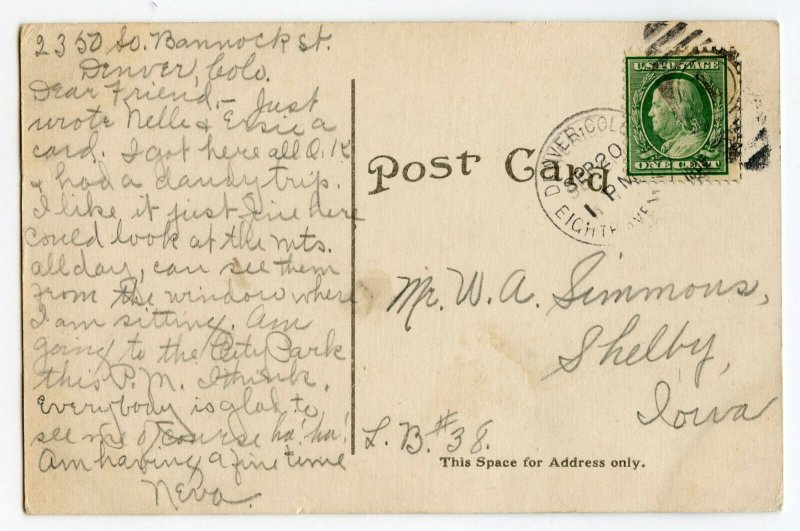 2350 So. Bannock St.
Denver, Colo.
Dear Friend,- Just
wrote Nelle & Elsie a
card. I got here all O.K
& had a dandy trip.
I like it just fine here
could look at the mts.
all day, can see them
from the window where
I am sitting. Am
going to the City Park
this P.M. I think.
Everybody is glad to
see me of course ha! ha!
Am having a fine time
Neva.
Post Card
DENVER, COLO
SEP 20
1 PM
EIGHTH AVENUE
U.S. POSTAGE
ONE CENT
Mr. W. A. Simmons,
Shelby,
Iowa
L. B. #38.
This Space for Address only.